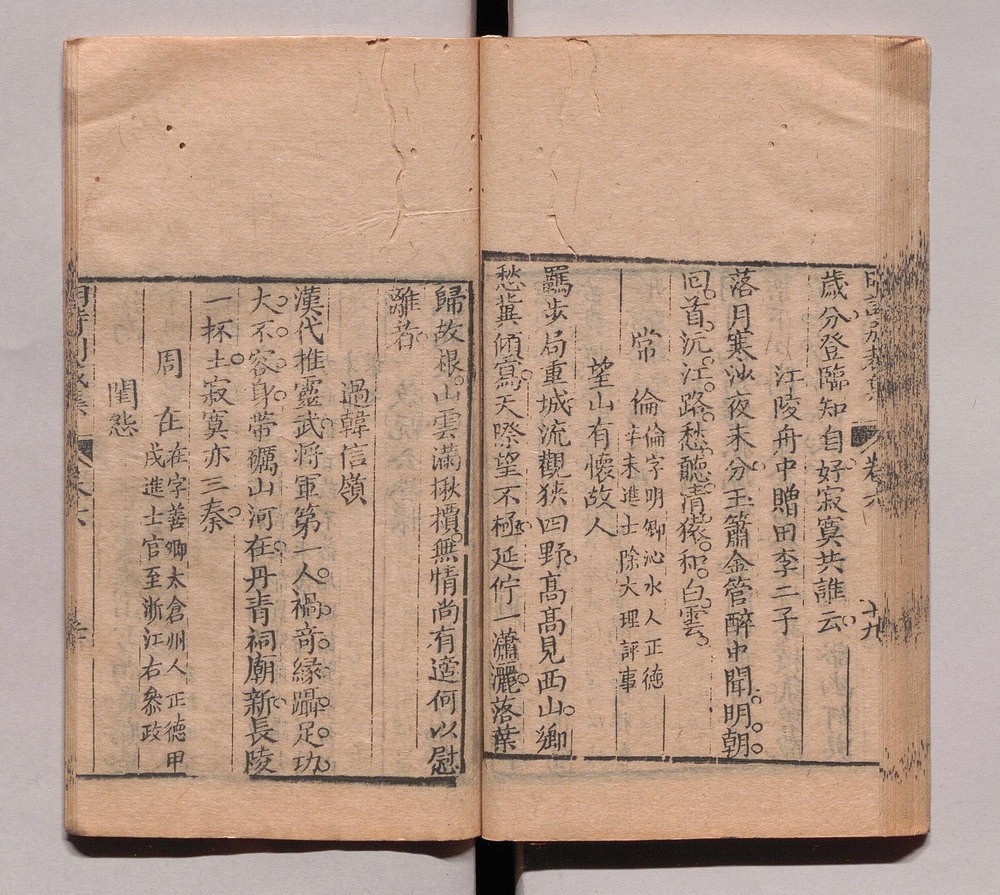 卷六
十九
歲分登臨知自好寂寞共誰云
江陵舟中贈田李二子
落月寒沙夜未分玉簫金管醉中聞明朝
回首沉江路愁聽清猿和白雲
常倫
倫字明卿沁水人正德
辛未進士除大理評事
望山有懷故人
羈步局重城流觀狹四野高高見西山鄉
愁冀傾寫天際望不極延佇一瀟灑落葉
歸故根山雲滿楸檟無情尚有適何以慰
離者
過韓信嶺
漢代推靈武將軍第一人禍奇緣躡足功
大不容身帶礪山河在丹青祠廟新長陵
一抔土寂寞亦三秦
周在
在字善卿太倉州人正德甲
戌進士官至浙江右參政
閨怨